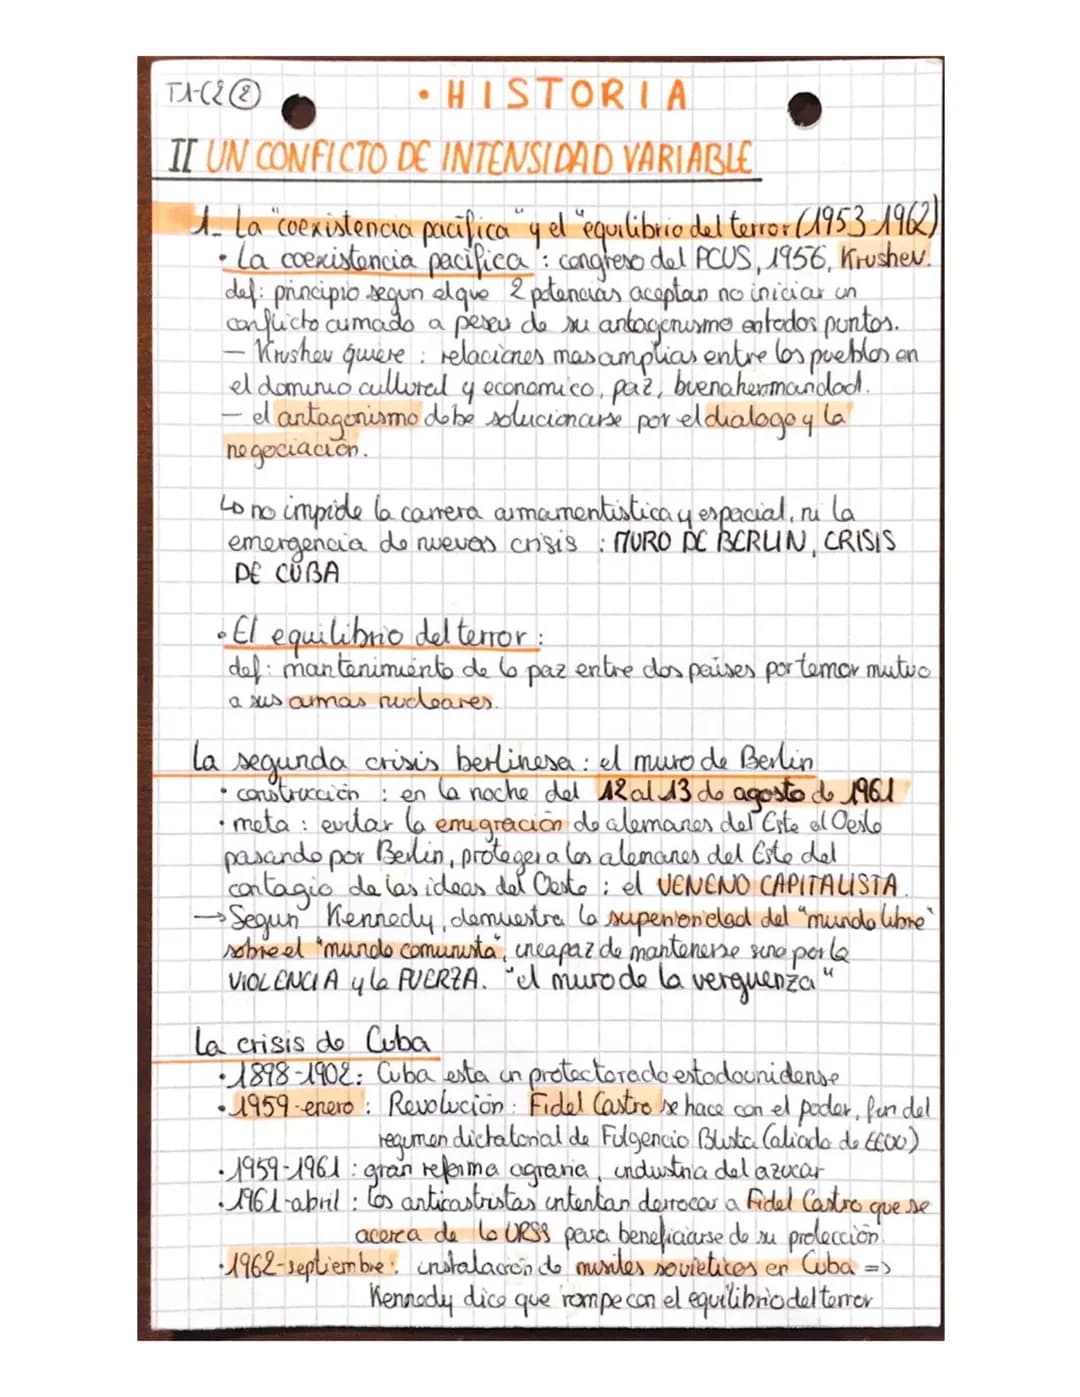 T1-C2 ②
• HISTORIA
II UN CONFICTO DE INTENSIDAD VARIABLE
1_ La "coexistencia pacífica" y el "equilibrio del terror (1953-1962)
• La coexistencia pacífica : congreso del PCUS, 1956, Krushev.
def: principio segun el que 2 potencias aceptan no iniciar un
conflicto armado a pesar de su antagonismo entodos puntos.
– Krushev quiere : relaciones mas amplias entre los pueblos en
el dominio cultural y economico, paz, buena hermandad.
– el antagonismo debe solucionarse por el dialogo y la
negociación.
↳ no impide la carrera armamentistica y espacial, ni la
emergencia de nuevas crisis : MURO DE BERLIN, CRISIS
DE CUBA
• El equilibrio del terror :
def: mantenimiento de la paz entre dos paises por temor mutuo
a sus armas nucleares.
La segunda crisis berlinesa : el muro de Berlin
• construcción : en la noche del 12 al 13 de agosto de 1961
• meta : evitar la emigración de alemanes del Este al Oeste
pasando por Berlin, proteger a los alemanes del Este del
contagio de las ideas del Oeste : el VENENO CAPITALISTA.
→ Segun Kennedy, demuestra la superioridad del "mundo libre"
sobre el "mundo comunista", incapaz de mantenerse sino por la
VIOLENCIA y la FUERZA. "el muro de la verguenza"
La crisis de Cuba
• 1898-1902: Cuba esta un protectorado estadounidense
• 1959-enero : Revolución : Fidel Castro se hace con el poder, fin del
regimen dictatorial de Fulgencio Blista (aliado de EEUU)
• 1959-1961 : gran reforma agraria, industria del azucar
• 1961-abril : los anticastristas intentan derrocar a Fidel Castro que se
acerca de la URSS para beneficiarse de su protección.
• 1962-septiembre : instalación de misiles sovieticos en Cuba =>
Kennedy dice que rompe con el equilibrio del terror